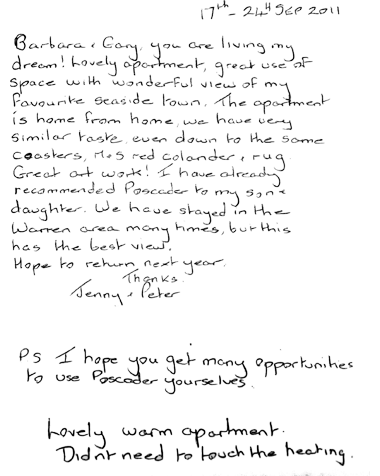 17th - 24th SEP 2011
Barbara & Gary, you are living my
dream! Lovely apartment, great use of
space with wonderful view of my
favourite seaside town. The apartment
is home from home, we have very
similar taste, even down to the same
coasters, M&S red colander & rug.
Great art work! I have already
recommended Poscader to my son &
daughter. We have stayed in the
Warren area many times, but this
has the best view.
Hope to return next year.
Thanks.
Jenny & Peter
PS I hope you get many opportunities
to use Poscader yourselves.
Lovely warm apartment.
Didnt need to touch the heating.